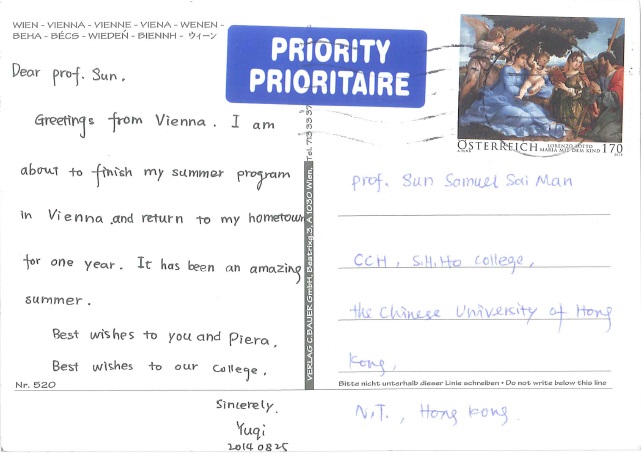 WIEN - VIENNA - VIENNE - VIENA - WENEN -
BEHA - BÉCS - WIEDEŃ - BIENNH - ウィーン
PRIORITY
PRIORITAIRE
Dear prof. Sun.
Greetings from Vienna. I am
about to finish my summer program
in Vienna .and return to my hometown
for one year. It has been an amazing
summer.
Best wishes to you and Piera.
Best wishes to our College.
Nr. 520
Sincerely.
Yuqi
20140825
VERLAG C.BAUER GmbH, Beatrixg.3, A 1030 Wien, Tel. 713 33 37
ÖSTERREICH
LORENZO LOTTO
MARIA MIT DEM KIND
170
prof. Sun Samuel Sai Man
CCH, S.H.Ho College,
the Chinese University of Hong
Kong,
Bitte nicht unterhalb dieser Linie schreiben • Do not write below this line
N.T., Hong Kong.